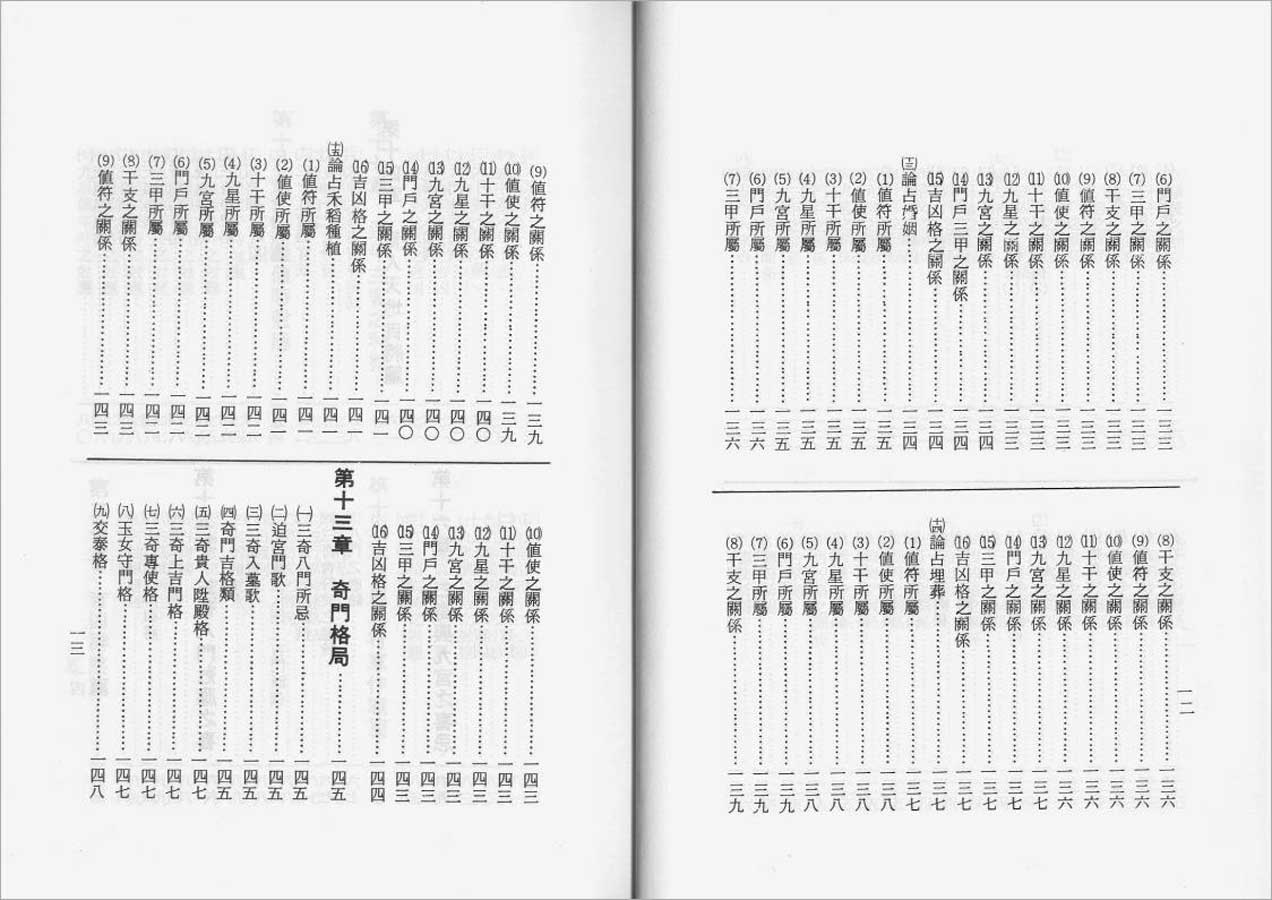 ⑹門戶之關係……一三三
⑺三甲之關係……一三三
⑻干支之關係……一三三
⑼值符之關係……一三三
⑽值使之關係……一三三
⑾十干之關係……一三三
⑿九星之關係……一三三
⒀九宮之關係……一三四
⒁門戶三甲之關係……一三四
⒂吉凶格之關係……一三四
(十三)論占婚姻……一三四
⑴值符所屬……一三五
⑵值使所屬……一三五
⑶十干所屬……一三五
⑷九星所屬……一三五
⑸九宮所屬……一三五
⑹門戶所屬……一三六
⑺三甲所屬……一三六
⑻干支之關係……一三六
⑼值符之關係……一三六
⑽值使之關係……一三六
⑾十干之關係……一三六
⑿九星之關係……一三六
⒀九宮之關係……一三七
⒁門戶之關係……一三七
⒂三甲之關係……一三七
⒃吉凶格之關係……一三七
(十四)論占埋葬……一三七
⑴值符所屬……一三七
⑵值使所屬……一三八
⑶十干所屬……一三八
⑷九星所屬……一三八
⑸九宮所屬……一三八
⑹門戶所屬……一三九
⑺三甲所屬……一三九
⑻干支之關係……一三九
一二
⑼值符之關係……一三九
⑽值使之關係……一三九
⑾十干之關係……一四〇
⑿九星之關係……一四〇
⒀九宮之關係……一四〇
⒁門戶之關係……一四〇
⒂三甲之關係……一四一
⒃吉凶格之關係……一四一
(十五)論占禾稻種植……一四一
⑴值符所屬……一四一
⑵值使所屬……一四一
⑶十干所屬……一四二
⑷九星所屬……一四二
⑸九宮所屬……一四二
⑹門戶所屬……一四二
⑺三甲所屬……一四二
⑻干支之關係……一四三
⑼值符之關係……一四三
⑽值使之關係……一四三
⑾十干之關係……一四三
⑿九星之關係……一四三
⒀九宮之關係……一四三
⒁門戶之關係……一四三
⒂三甲之關係……一四三
⒃吉凶格之關係……一四四
第十三章 奇門格局……一四五
㈠三奇八門所忌……一四五
㈡迫宮門歌……一四五
㈢三奇入墓歌……一四五
㈣奇門吉格類……一四五
㈤三奇貴人陞殿格……一四七
㈥三奇上吉門格……一四七
㈦三奇專使格……一四七
㈧玉女守門格……一四七
㈨交泰格……一四八
一三